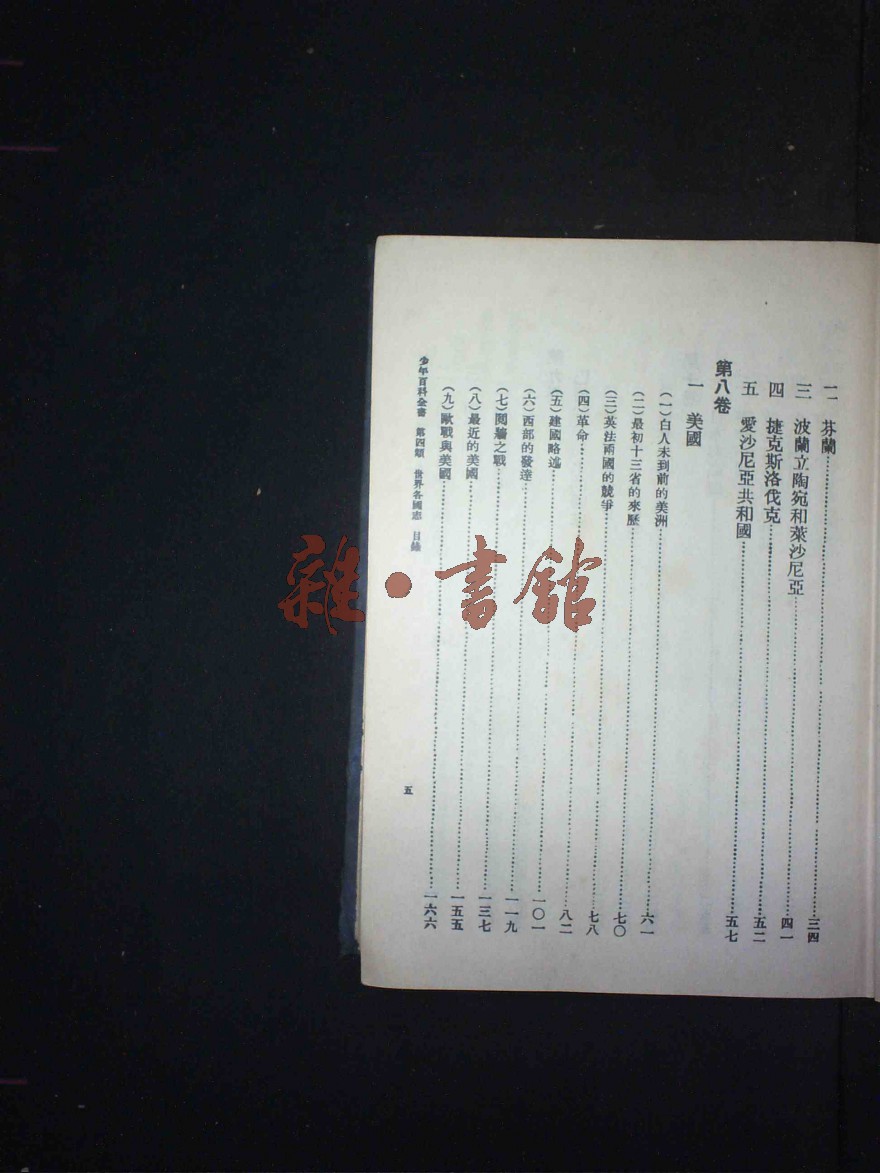 二　芬蘭……三四
三　波蘭立陶宛和萊沙尼亞……四一
四　捷克斯洛伐克……五二
五　愛沙尼亞共和國……五七
第八卷
一　美國
（一）白人未到前的美洲……六一
（二）最初十三省的來歷……七〇
（三）英法兩國的競爭……七八
（四）革命……八二
（五）建國略述……一〇一
（六）西部的發達……一一九
（七）鬩牆之戰……一三七
（八）最近的美國……一五五
（九）歐戰與美國……一六六
少年百科全書　第四類　世界各國志　目錄
五
雜・書館